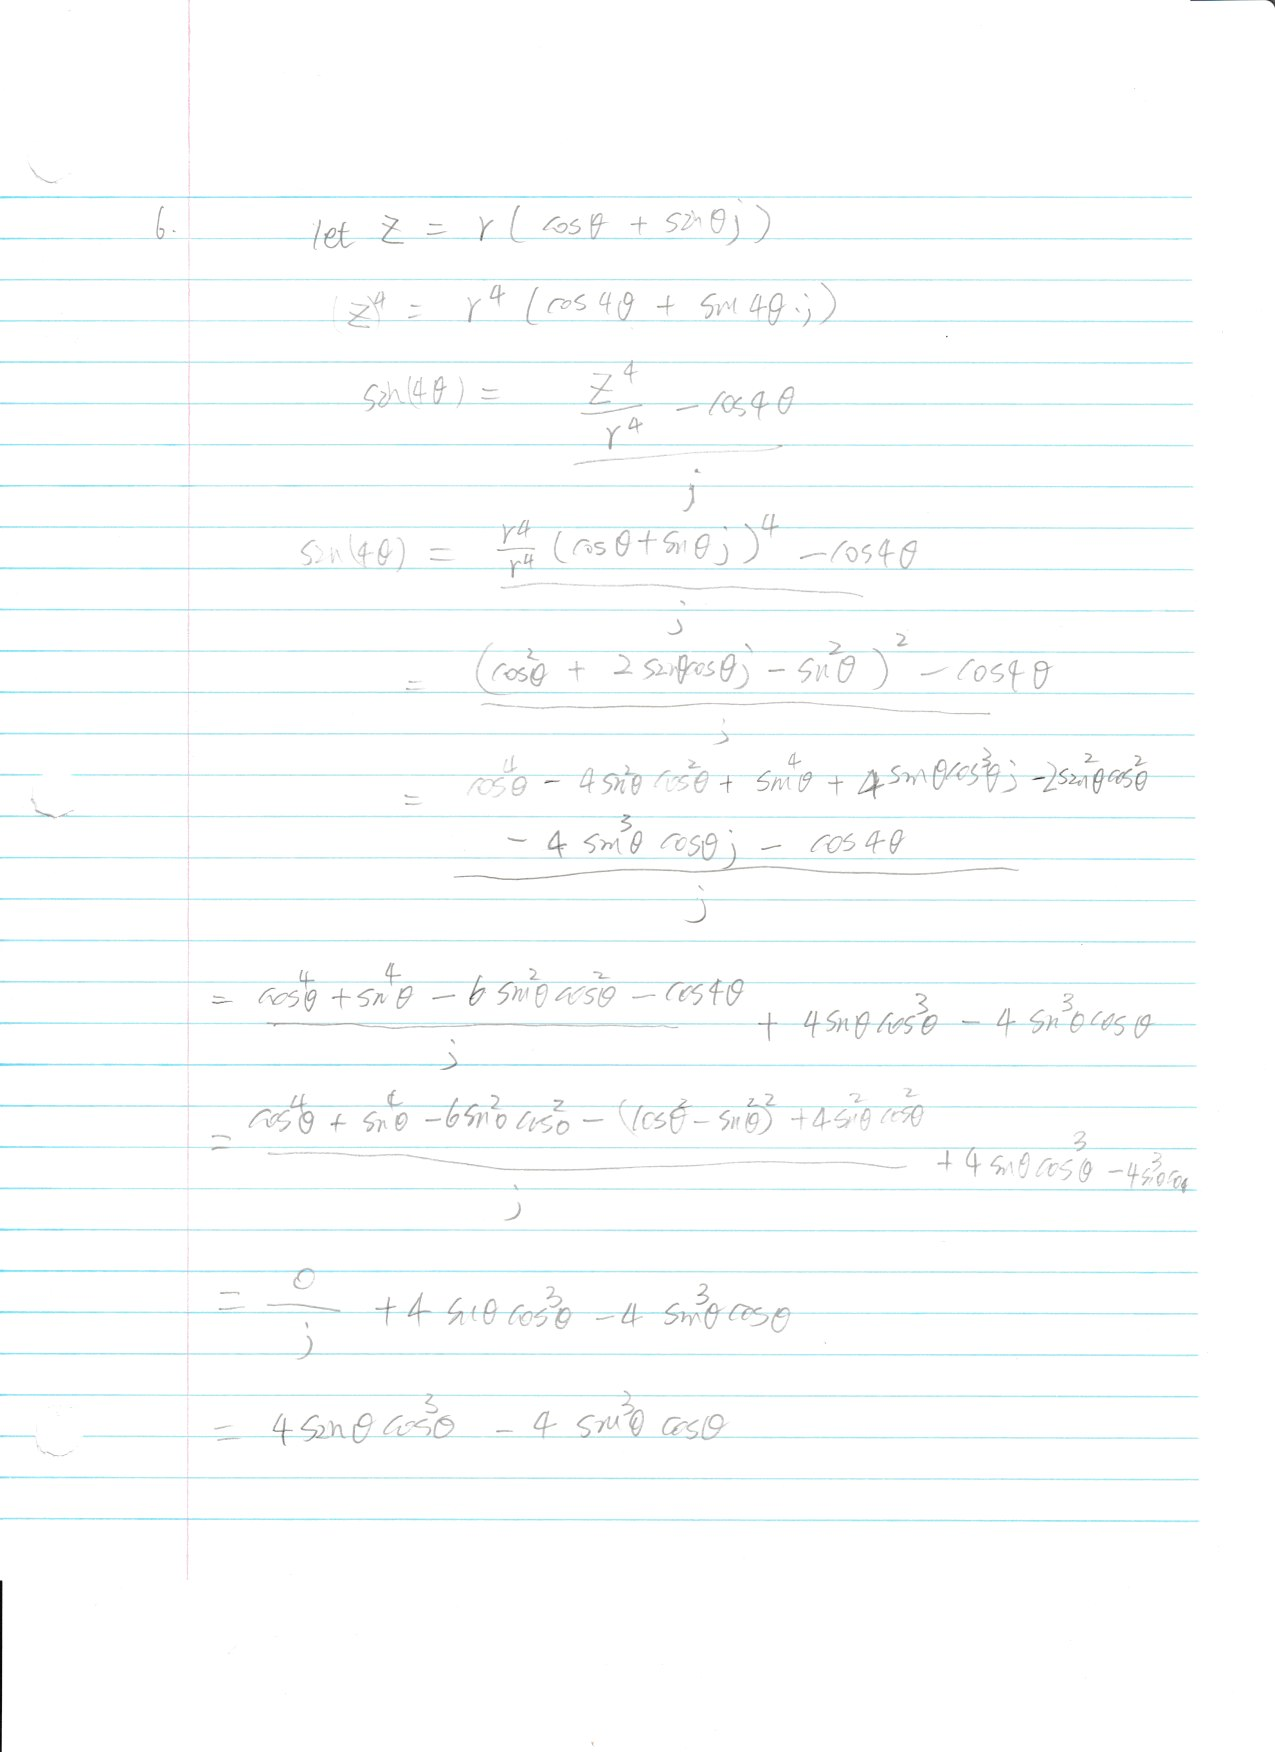 6. let z = r ( cosθ + sinθj )
(z)⁴ = r⁴ ( cos 4θ + sin 4θ·j )
sin(4θ) = (z⁴/r⁴ - cos4θ) / j
sin(4θ) = (r⁴/r⁴ (cosθ + sinθj)⁴ - cos4θ) / j
= ((cos²θ + 2sinθcosθj - sin²θ)² - cos4θ) / j
= cos⁴θ - 4sin²θ cos²θ + sin⁴θ + 4sinθcos³θj - 2sin²θcos²θ
- 4 sin³θ cosθj - cos4θ / j
= (cos⁴θ + sin⁴θ - 6 sin²θ cos²θ - cos4θ) / j + 4sinθcos³θ - 4 sin³θcosθ
= (cos⁴θ + sin⁴θ - 6sin²θ cos²θ - (cos²θ - sin²θ)² + 4sin²θ cos²θ) / j + 4 sinθcos³θ - 4sin³θcosθ
= 0/j + 4 sinθcos³θ - 4 sin³θcosθ
= 4sinθcos³θ - 4 sin³θ cosθ